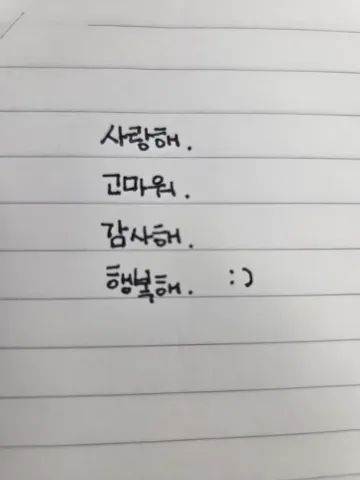 사랑해.
고마워.
감사해.
행복해. :)